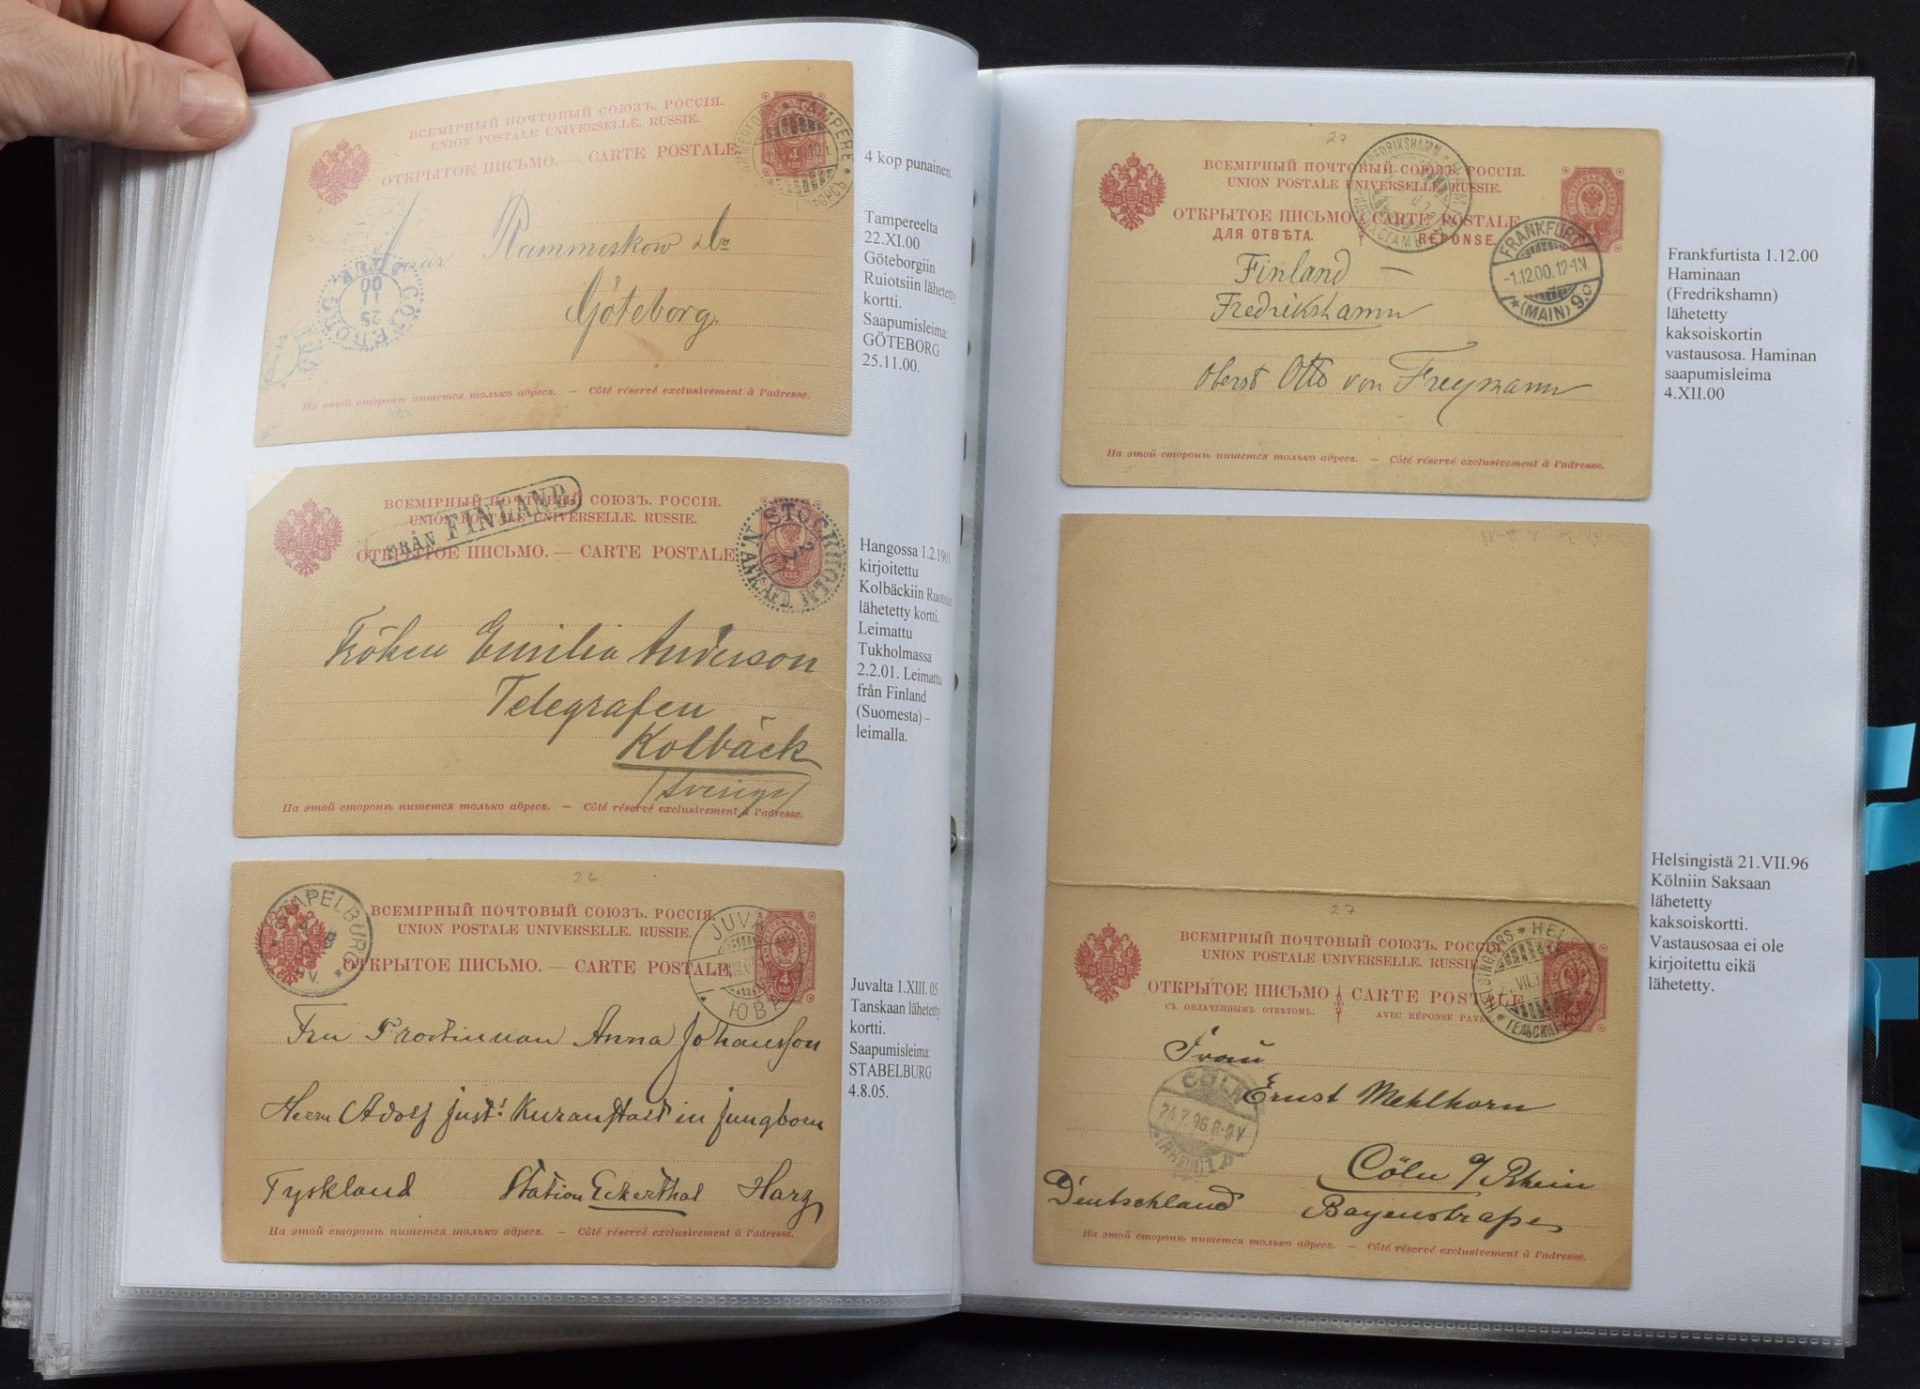 ВСЕМІРНЫЙ ПОЧТОВЫЙ СОЮЗЪ. РОССІЯ.
UNION POSTALE UNIVERSELLE. RUSSIE.
ОТКРЫТОЕ ПИСЬМО. — CARTE POSTALE.
TAMPERE
Rammeskow & Co
Göteborg.
GÖTEBORG
25
11
00
На этой сторонѣ пишется только адресъ. — Côté réservé exclusivement à l'adresse.
4 kop punainen.
Tampereelta
22.XI.00
Göteborgiin
Ruiotsiin lähetetty
kortti.
Saapumisleima:
GÖTEBORG
25.11.00.
ВСЕМІРНЫЙ ПОЧТОВЫЙ СОЮЗЪ. РОССІЯ.
UNION POSTALE UNIVERSELLE. RUSSIE.
FRÅN FINLAND
ОТКРЫТОЕ ПИСЬМО. — CARTE POSTALE
STOCKHOLM
Fröken Emilia Anderson
Telegrafen
Kolbäck
(Sverige)
На этой сторонѣ пишется только адресъ. — Côté réservé exclusivement à l'adresse.
Hangossa 1.2.1901
kirjoitettu
Kolbäckiin Ruotsiin
lähetetty kortti.
Leimattu
Tukholmassa
2.2.01. Leimattu
från Finland
(Suomesta) –
leimalla.
26
STAPELBURG
ВСЕМІРНЫЙ ПОЧТОВЫЙ СОЮЗЪ. РОССІЯ.
UNION POSTALE UNIVERSELLE. RUSSIE.
ОТКРЫТОЕ ПИСЬМО. — CARTE POSTALE.
JUVA
ЮВА
4 КОП
Anna Johansson
Herrn Adolf Just's Kuranstalt in Jungborn
Tyskland Station Eckerthal Harz
На этой сторонѣ пишется только адресъ. — Côté réservé exclusivement à l'adresse.
Juvalta 1.XIII. 05
Tanskaan lähetetty
kortti.
Saapumisleima:
STABELBURG
4.8.05.
27
ВСЕМІРНЫЙ ПОЧТОВЫЙ СОЮЗЪ. РОССІЯ.
UNION POSTALE UNIVERSELLE. RUSSIE.
ОТКРЫТОЕ ПИСЬМО CARTE POSTALE
ДЛЯ ОТВѢТА. RÉPONSE.
FREDRIKSHAMN
FRANKFURT
-1.12.00.12-1N.
*(MAIN) 9.c
Finland —
Fredrikshamn
Oberst Otto von Freymann
На этой сторонѣ пишется только адресъ. — Côté réservé exclusivement à l'adresse.
Frankfurtista 1.12.00
Haminaan
(Fredrikshamn)
lähetetty
kaksoiskortin
vastausosa. Haminan
saapumisleima
4.XII.00
27
ВСЕМІРНЫЙ ПОЧТОВЫЙ СОЮЗЪ. РОССІЯ
UNION POSTALE UNIVERSELLE. RUSSIE
ОТКРЫТОЕ ПИСЬМО CARTE POSTALE
СЪ ОПЛАЧЕННЫМЪ ОТВѢТОМЪ. AVEC RÉPONSE PAYÉE
HELSINGFORS
Frau
Ernst Mehlhorn
CÖLN
24.7.96.8-9V
(RHEIN) 1.P
Cöln a/Rhein
Deutschland Bayenstraße
На этой сторонѣ пишется только адресъ. — Côté réservé exclusivement à l'adresse.
Helsingistä 21.VII.96
Kölniin Saksaan
lähetetty
kaksoiskortti.
Vastausosaa ei ole
kirjoitettu eikä
lähetetty.